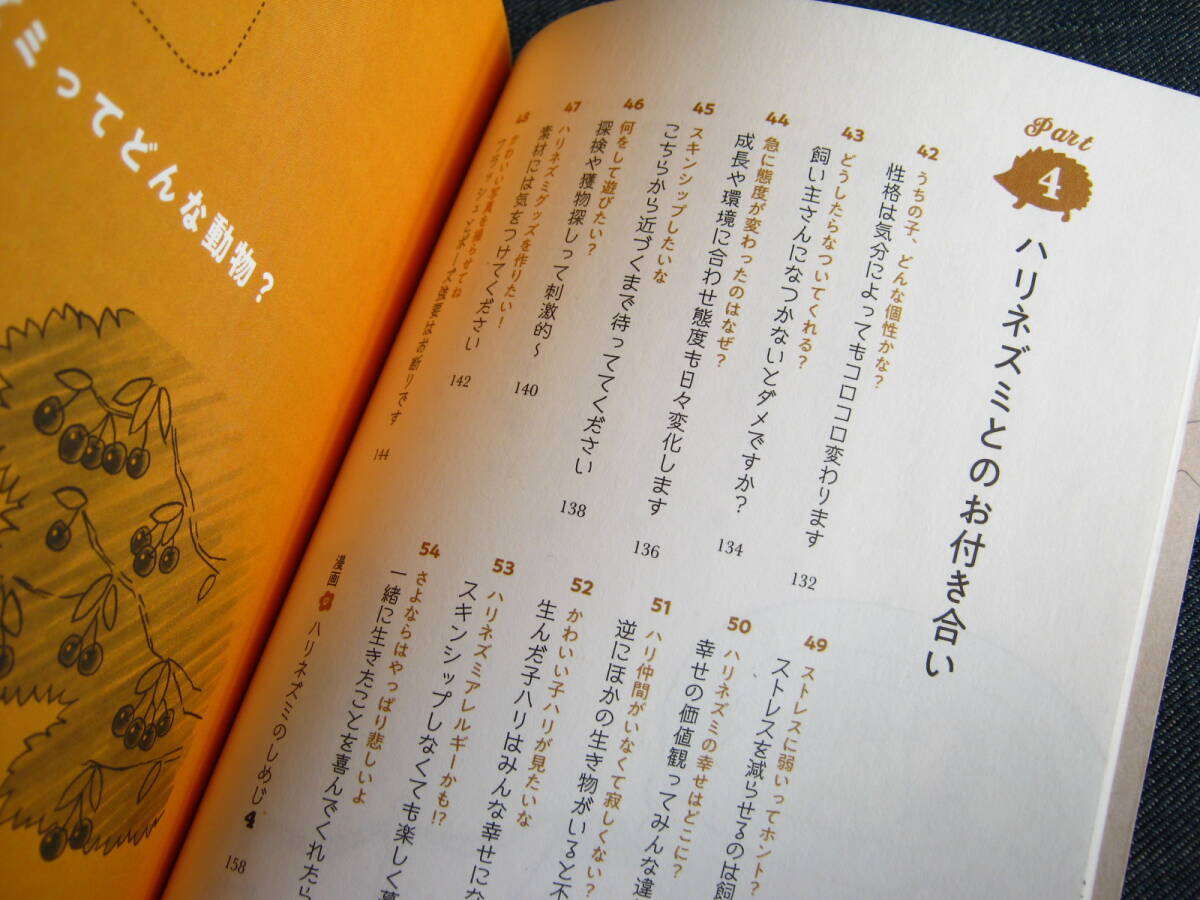 Part
4
ハリネズミとのお付き合い
42 うちの子、どんな個性かな?
性格は気分によってもコロコロ変わります 132
43 どうしたらなついてくれる?
飼い主さんになつかないとダメですか? 134
44 急に態度が変わったのはなぜ?
成長や環境に合わせ態度も日々変化します 136
45 スキンシップしたいな
こちらから近づくまで待っててください 138
46 何をして遊びたい?
探検や獲物探しって刺激的〜 140
47 ハリネズミグッズを作りたい!
素材には気をつけてください 142
48 かわいい写真を撮らせてね
フラッシュとポーズ強要はお断りです 144
49 ストレスに弱いってホント?
ストレスを減らせるのは飼
50 ハリネズミの幸せはどこに?
幸せの価値観ってみんな違
51 ハリ仲間がいなくて寂しくない?
逆にほかの生き物がいると不
52 かわいい子ハリが見たいな
生んだ子ハリはみんな幸せにな
53 ハリネズミアレルギーかも!?
スキンシップしなくても楽しく
54 さよならはやっぱり悲しいよ
一緒に生きたことを喜んでくれたら
漫画 ハリネズミのしめじ 4 158
ミってどんな動物?